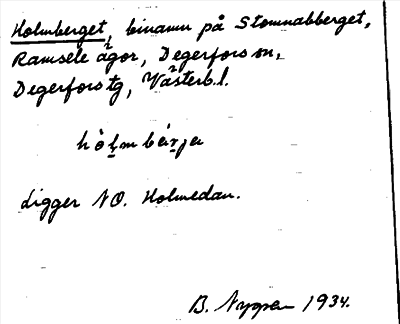 Holmberget, binamn på Stomnabberget,
Ramsele ägor, Degerfors sn,
Degerfors tg, Västerb.l.
hòlmbærjə
Ligger NO. Holmedan.
B. Nygren 1934.